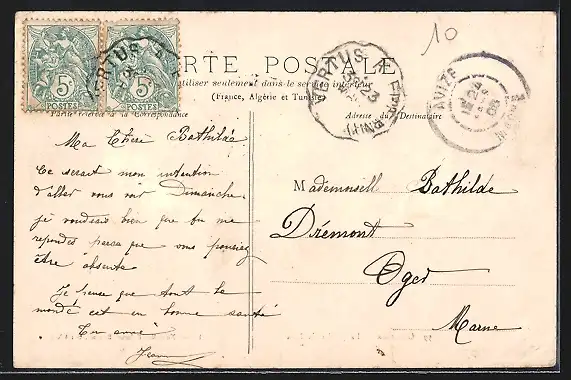 10
5c 5c
POSTES POSTES
CARTE POSTALE
utiliser seulement dans le service intérieur
(France, Algérie et Tunisie)
Partie réservée à la Correspondance
Adresse du Destinataire
VERTUS A EPERNAY
23
AVIZE
MARNE
Ma Chère Bathilde
Ce serait mon intention
d'aller vous voir Dimanche.
je voudrais bien que tu me
repondes parsa que vous pouriez
être absente
Je pense que tout le
monde est en bonne santé
Ton amie
Jeanne
Mademoiselle Bathilde
Drémont
Oger
Marne